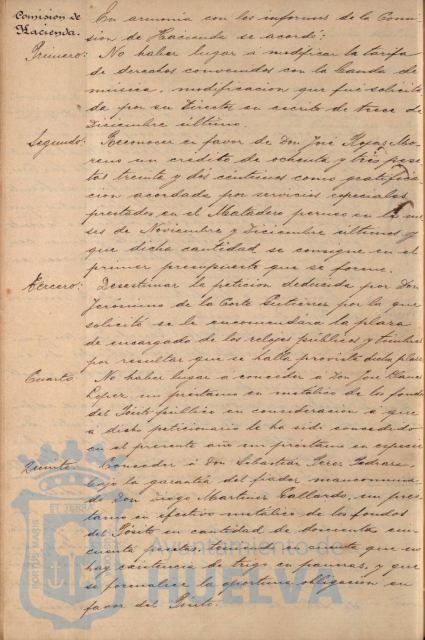 Comision de
Hacienda.
En armonía con los informes de la Comi-
sion de Hacienda se acordó:
Primero: No haber lugar á modificar la tarifa
de derechos convenidos con la banda de
música, modificacion que fué solicita
da por su Director en escrito de trece de
Diciembre último.
Segundo: Reconocer en favor de Don José Rojas Mo-
reno un crédito de ochenta y tres pese
tas treinta y dos céntimos como gratifi-
cacion acordada por servicios especiales
prestados en el Matadero en los me-
ses de Noviembre y Diciembre últimos y
que dicha cantidad se consigne en el
primer presupuesto que se forme.
Tercero: Desestimar la peticion deducida por Don
Jerónimo de la Corte Gutierrez por la que
solicitó se le encomendara la plaza
de encargado de los relojes públicos y timbres
por resultar que se halla provista dicha plaza
Cuarto: No haber lugar á conceder á Don José
Lopez, un préstamo en metálico de los fondos
del Pósito público en consideracion á que
á dicho peticionario le ha sido concedido
en el presente año un préstamo en especie
Quinto: Conceder á Don Sebastian Perez
bajo la garantía del fiador mancomuna-
do Don Diego Martinez Gallardo, un prés
tamo en efectivo metálico de los fondos
del Pósito en cantidad de doscientas cin-
cuenta pesetas que no
hay existencia de trigo en paneras, y que
se formalice la oportuna obligacion en
favor del Pósito.
ET TERRAE
PORTUS MARIS
Ayuntamiento de
HUELVA